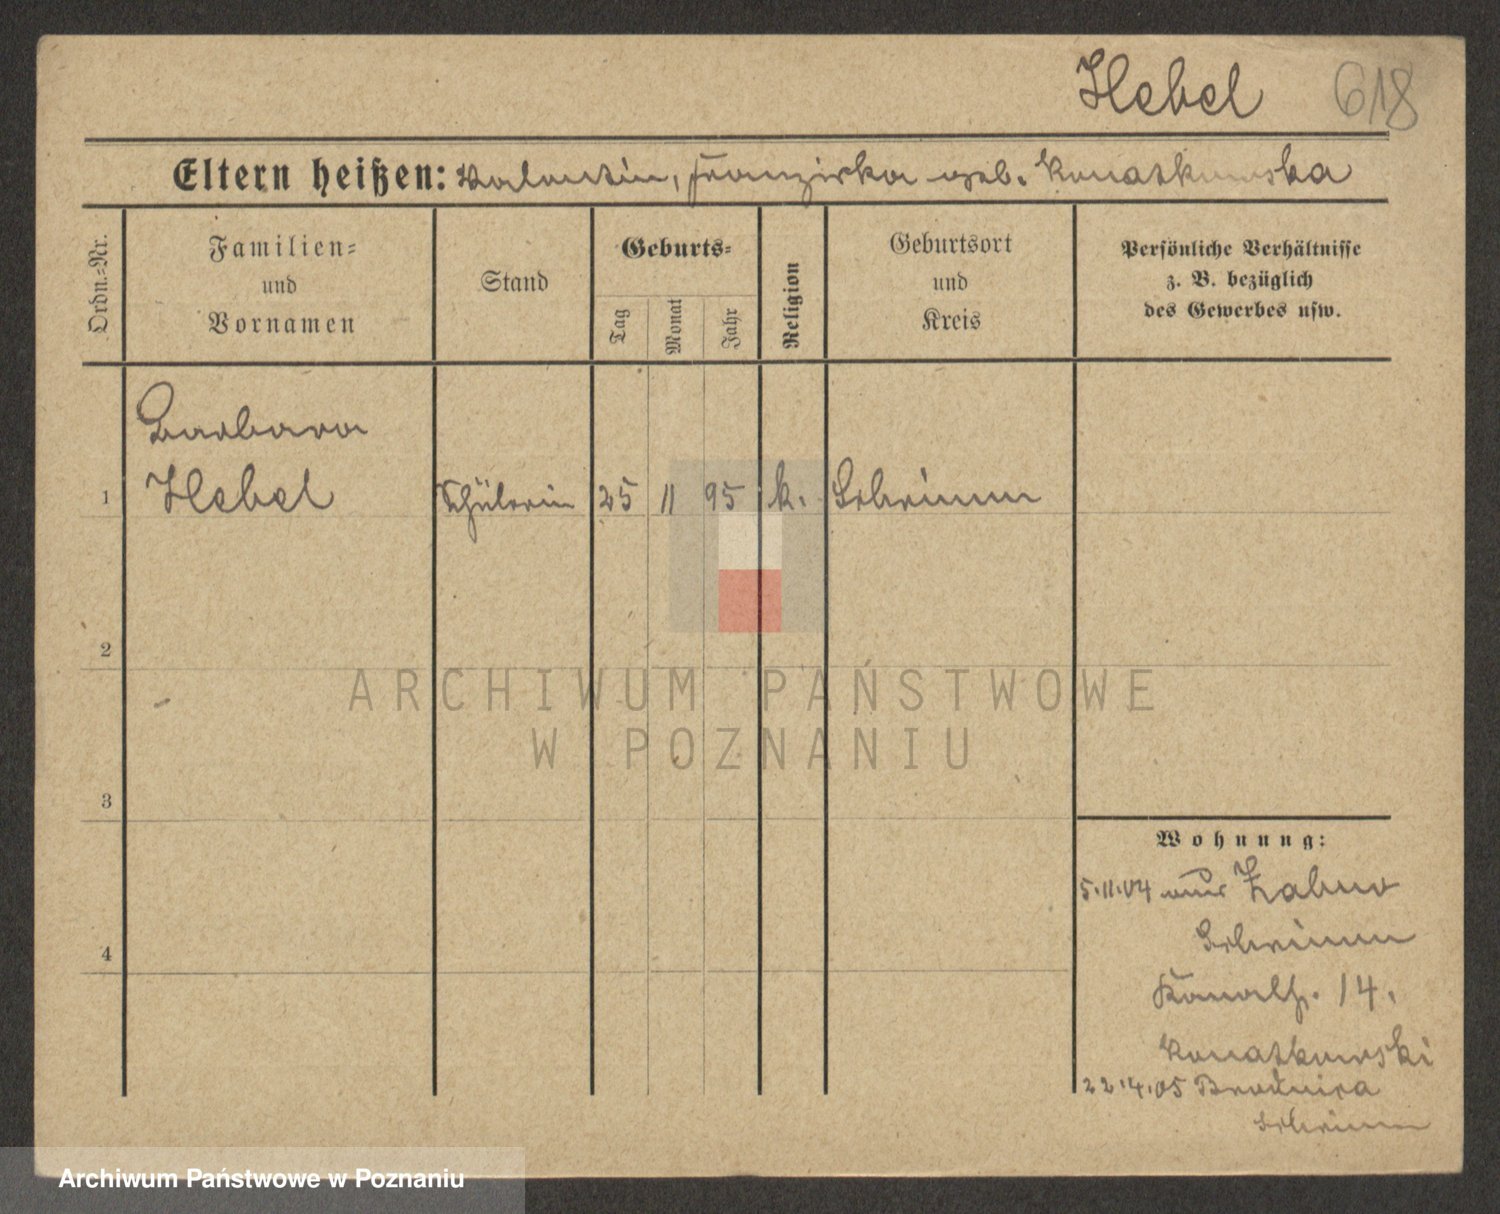 Hebel 618
Eltern heißen: Valentin, Franziska geb. Konatkowska
Ordn.-Nr.
Familien-
und
Vornamen
Stand
Geburts-
Tag
Monat
Jahr
Religion
Geburtsort
und
Kreis
Persönliche Verhältnisse
z. B. bezüglich
des Gewerbes usw.
Barbara
1 Hebel Schülerin 25 11 95 k. Schrimm
2
ARCHIWUM PAŃSTWOWE
W POZNANIU
3
Wohnung:
5.11.04 aus Zabno
Schrimm
4
Kanalstr. 14.
Konatkowski
22.4.05 Brodnica
Schrimm
Archiwum Państwowe w Poznaniu